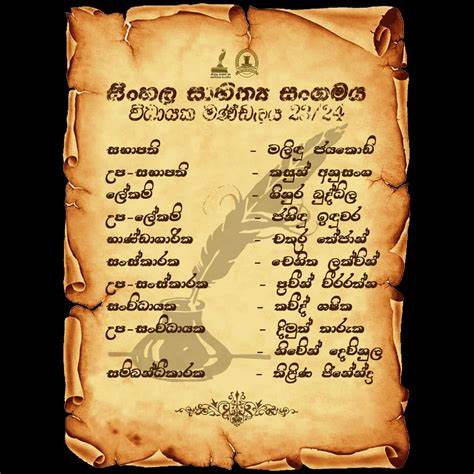 සිංහල සාහිත්‍ය සංගමය
විධායක මණ්ඩලය 23/24
සභාපති - මලිඳු ජයකොඩි
උප-සභාපති - කසුන් අනුසංග
ලේකම් - මිනුර බුද්ධිල
උප-ලේකම් - ජනිඳු ඉඳුවර
භාණ්ඩාගාරික - චතුර තේජාන්
සංස්කාරක - චෙනිත ලක්වින්
උප-සංස්කාරක - ප්‍රවීන් වීරරත්න
සංවිධායක - කවිද් ශෂික
උප-සංවිධායක - දිමුත් තාරුක
- නිවේන් දෙව්නුල
සම්බන්ධීකාරක - තිළිණ ජිනේන්ද්‍ර